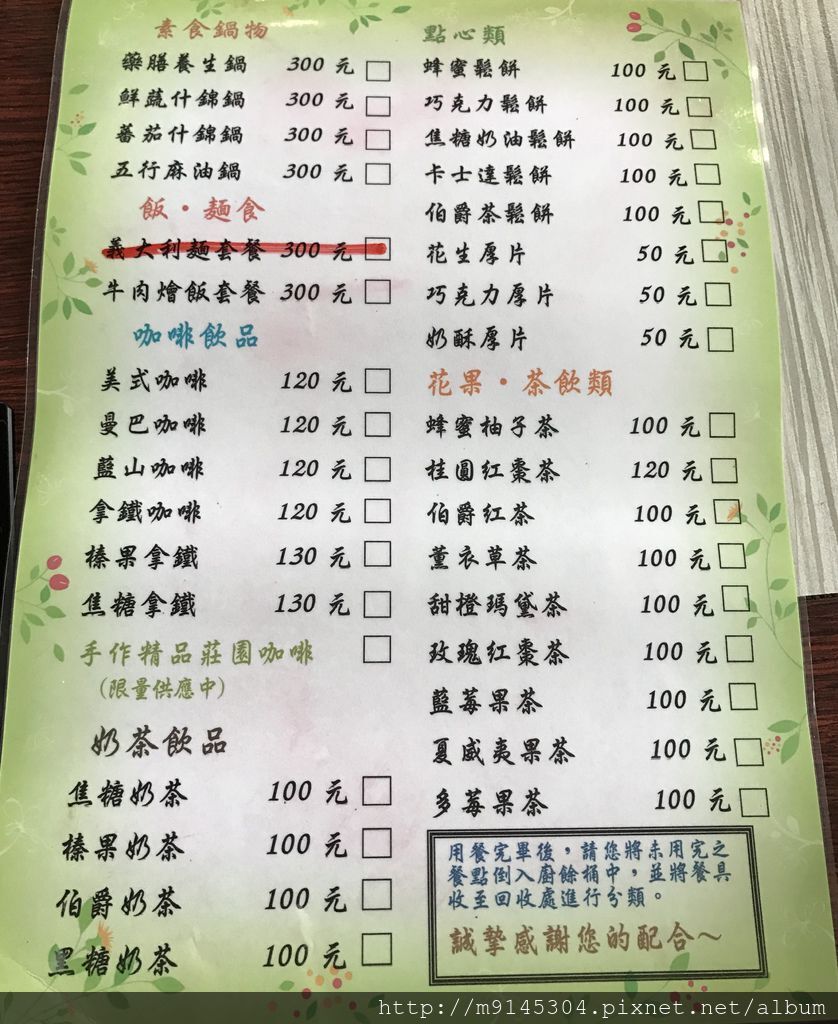 素食鍋物
藥膳養生鍋 300 元
鮮蔬什錦鍋 300 元
蕃茄什錦鍋 300 元
五行麻油鍋 300 元
飯・麵食
義大利麵套餐 300 元
牛肉燴飯套餐 300 元
咖啡飲品
美式咖啡 120 元
曼巴咖啡 120 元
藍山咖啡 120 元
拿鐵咖啡 120 元
榛果拿鐵 130 元
焦糖拿鐵 130 元
手作精品莊園咖啡
(限量供應中)
奶茶飲品
焦糖奶茶 100 元
榛果奶茶 100 元
伯爵奶茶 100 元
黑糖奶茶 100 元
點心類
蜂蜜鬆餅 100 元
巧克力鬆餅 100 元
焦糖奶油鬆餅 100 元
卡士達鬆餅 100 元
伯爵茶鬆餅 100 元
花生厚片 50 元
巧克力厚片 50 元
奶酥厚片 50 元
花果・茶飲類
蜂蜜柚子茶 100 元
桂圓紅棗茶 120 元
伯爵紅茶 100 元
薰衣草茶 100 元
甜橙瑪黛茶 100 元
玫瑰紅棗茶 100 元
藍莓果茶 100 元
夏威夷果茶 100 元
多莓果茶 100 元
用餐完畢後，請您將未用完之
餐點倒入廚餘桶中，並將餐具
收至回收處進行分類。
誠摯感謝您的配合～
http://m9145304.pixnet.net/album